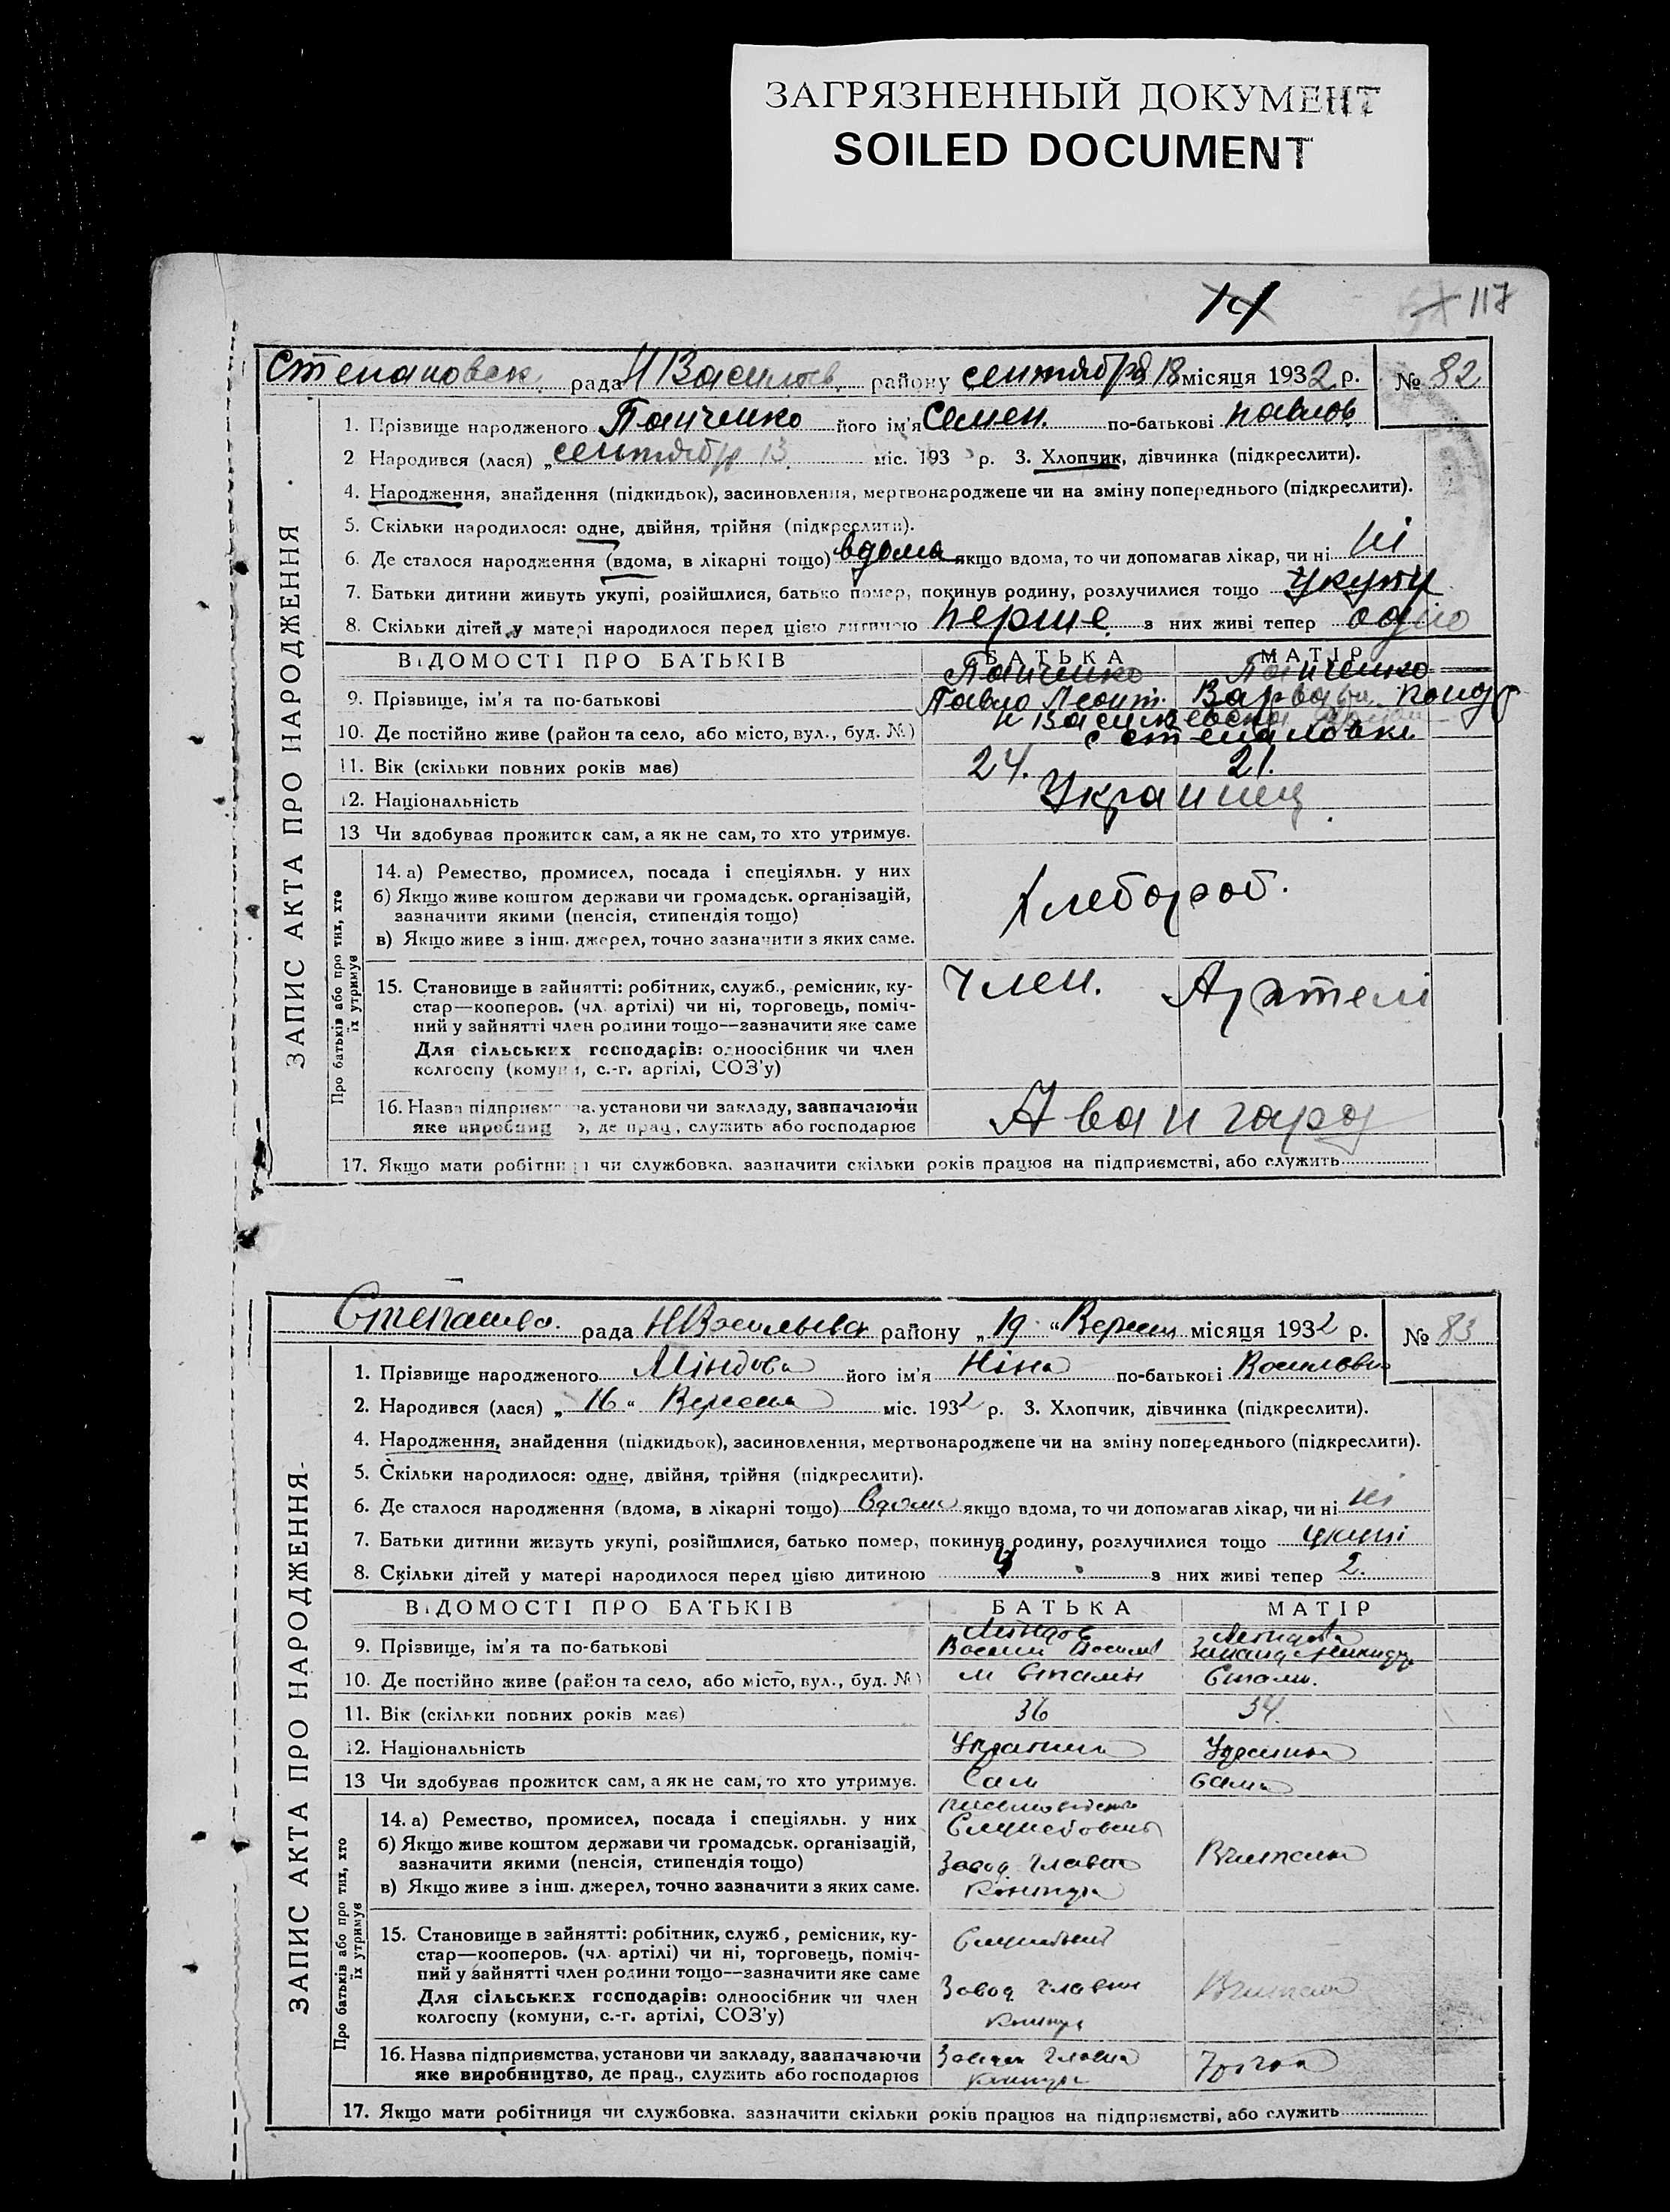 ЗАГРЯЗНЕННЫЙ ДОКУМЕНТ
SOILED DOCUMENT
117
Степановск рада Н Василів району „сентября 18 місяця 1932 р. № 82
ЗАПИС АКТА ПРО НАРОДЖЕННЯ
1. Прізвище народженого Панченко його ім'я Семен. по-батькові Павлов.
2 Народився (лася) „сентября 13 міс. 193 р. 3. Хлопчик, дівчинка (підкреслити).
4. Народження, знайдення (підкидьок), засиновлення, мертвонароджене чи на зміну попереднього (підкреслити).
5. Скільки народилося: одне, двійня, трійня (підкреслити).
6. Де сталося народження (вдома, в лікарні тощо) вдома якщо вдома, то чи допомагав лікар, чи ні ні
7. Батьки дитини живуть укупі, розійшлися, батько помер, покинув родину, розлучилися тощо укупи
8. Скільки дітей у матері народилося перед цією дитиною перше з них живі тепер одно
ВІДОМОСТІ ПРО БАТЬКІВ БАТЬКА МАТІР
Панченко Панченко
9. Прізвище, ім'я та по-батькові Павло Леонт. Варвара
10. Де постійно живе (район та село, або місто, вул., буд. №) Н Василевска с степановки
11. Вік (скільки повних років має) 24. 21.
12. Національність Украинец
13 Чи здобував прожиток сам, а як не сам, то хто утримує.
Про батьків або про тих, хто їх утримує
14. а) Ремество, промисел, посада і спеціяльн. у них
б) Якщо живе коштом держави чи громадськ. організацій,
зазначити якими (пенсія, стипендія тощо) Хлебороб.
в) Якщо живе з інш. джерел, точно зазначити з яких саме.
15. Становище в зайнятті: робітник, служб., ремісник, ку- член. Артели
стар—кооперов. (чл. артілі) чи ні, торговець, поміч-
ний у зайнятті член родини тощо—зазначити яке саме
Для сільських господарів: одноосібник чи член
колгоспу (комуни, с.-г. артілі, СОЗ'у)
16. Назва підприємства, установи чи закладу, зазначаючи Авангард
яке виробництво, де прац., служить або господарює
17. Якщо мати робітниця чи службовка, зазначити скільки років працює на підприємстві, або служить
рада НВасильева району „19“ Вересня місяця 1932 р. № 83
ЗАПИС АКТА ПРО НАРОДЖЕННЯ
1. Прізвище народженого Міндова його ім'я Ніна по-батькові Василовна
2. Народився (лася) „16“ Вересня міс. 1932 р. 3. Хлопчик, дівчинка (підкреслити).
4. Народження, знайдення (підкидьок), засиновлення, мертвонароджене чи на зміну попереднього (підкреслити).
5. Скільки народилося: одне, двійня, трійня (підкреслити).
6. Де сталося народження (вдома, в лікарні тощо) вдома якщо вдома, то чи допомагав лікар, чи ні ні
7. Батьки дитини живуть укупі, розійшлися, батько помер, покинув родину, розлучилися тощо укупі
8. Скільки дітей у матері народилося перед цією дитиною з них живі тепер 2.
ВІДОМОСТІ ПРО БАТЬКІВ БАТЬКА МАТІР
9. Прізвище, ім'я та по-батькові
10. Де постійно живе (район та село, або місто, вул., буд. №) м Сталін Сталін.
11. Вік (скільки повних років має) 36 34.
12. Національність Українец Українка
13 Чи здобував прожиток сам, а як не сам, то хто утримує. Сам сама
Про батьків або про тих, хто їх утримує
14. а) Ремество, промисел, посада і спеціяльн. у них Службовець
б) Якщо живе коштом держави чи громадськ. організацій,
зазначити якими (пенсія, стипендія тощо) Завод главна Вчителька
в) Якщо живе з інш. джерел, точно зазначити з яких саме. контура
15. Становище в зайнятті: робітник, служб., ремісник, ку- Службовець
стар—кооперов. (чл. артілі) чи ні, торговець, поміч-
ний у зайнятті член родини тощо—зазначити яке саме Завод главна Вчителька
Для сільських господарів: одноосібник чи член
колгоспу (комуни, с.-г. артілі, СОЗ'у) контура
16. Назва підприємства, установи чи закладу, зазначаючи Завод главна
яке виробництво, де прац., служить або господарює контура
17. Якщо мати робітниця чи службовка, зазначити скільки років працює на підприємстві, або служить